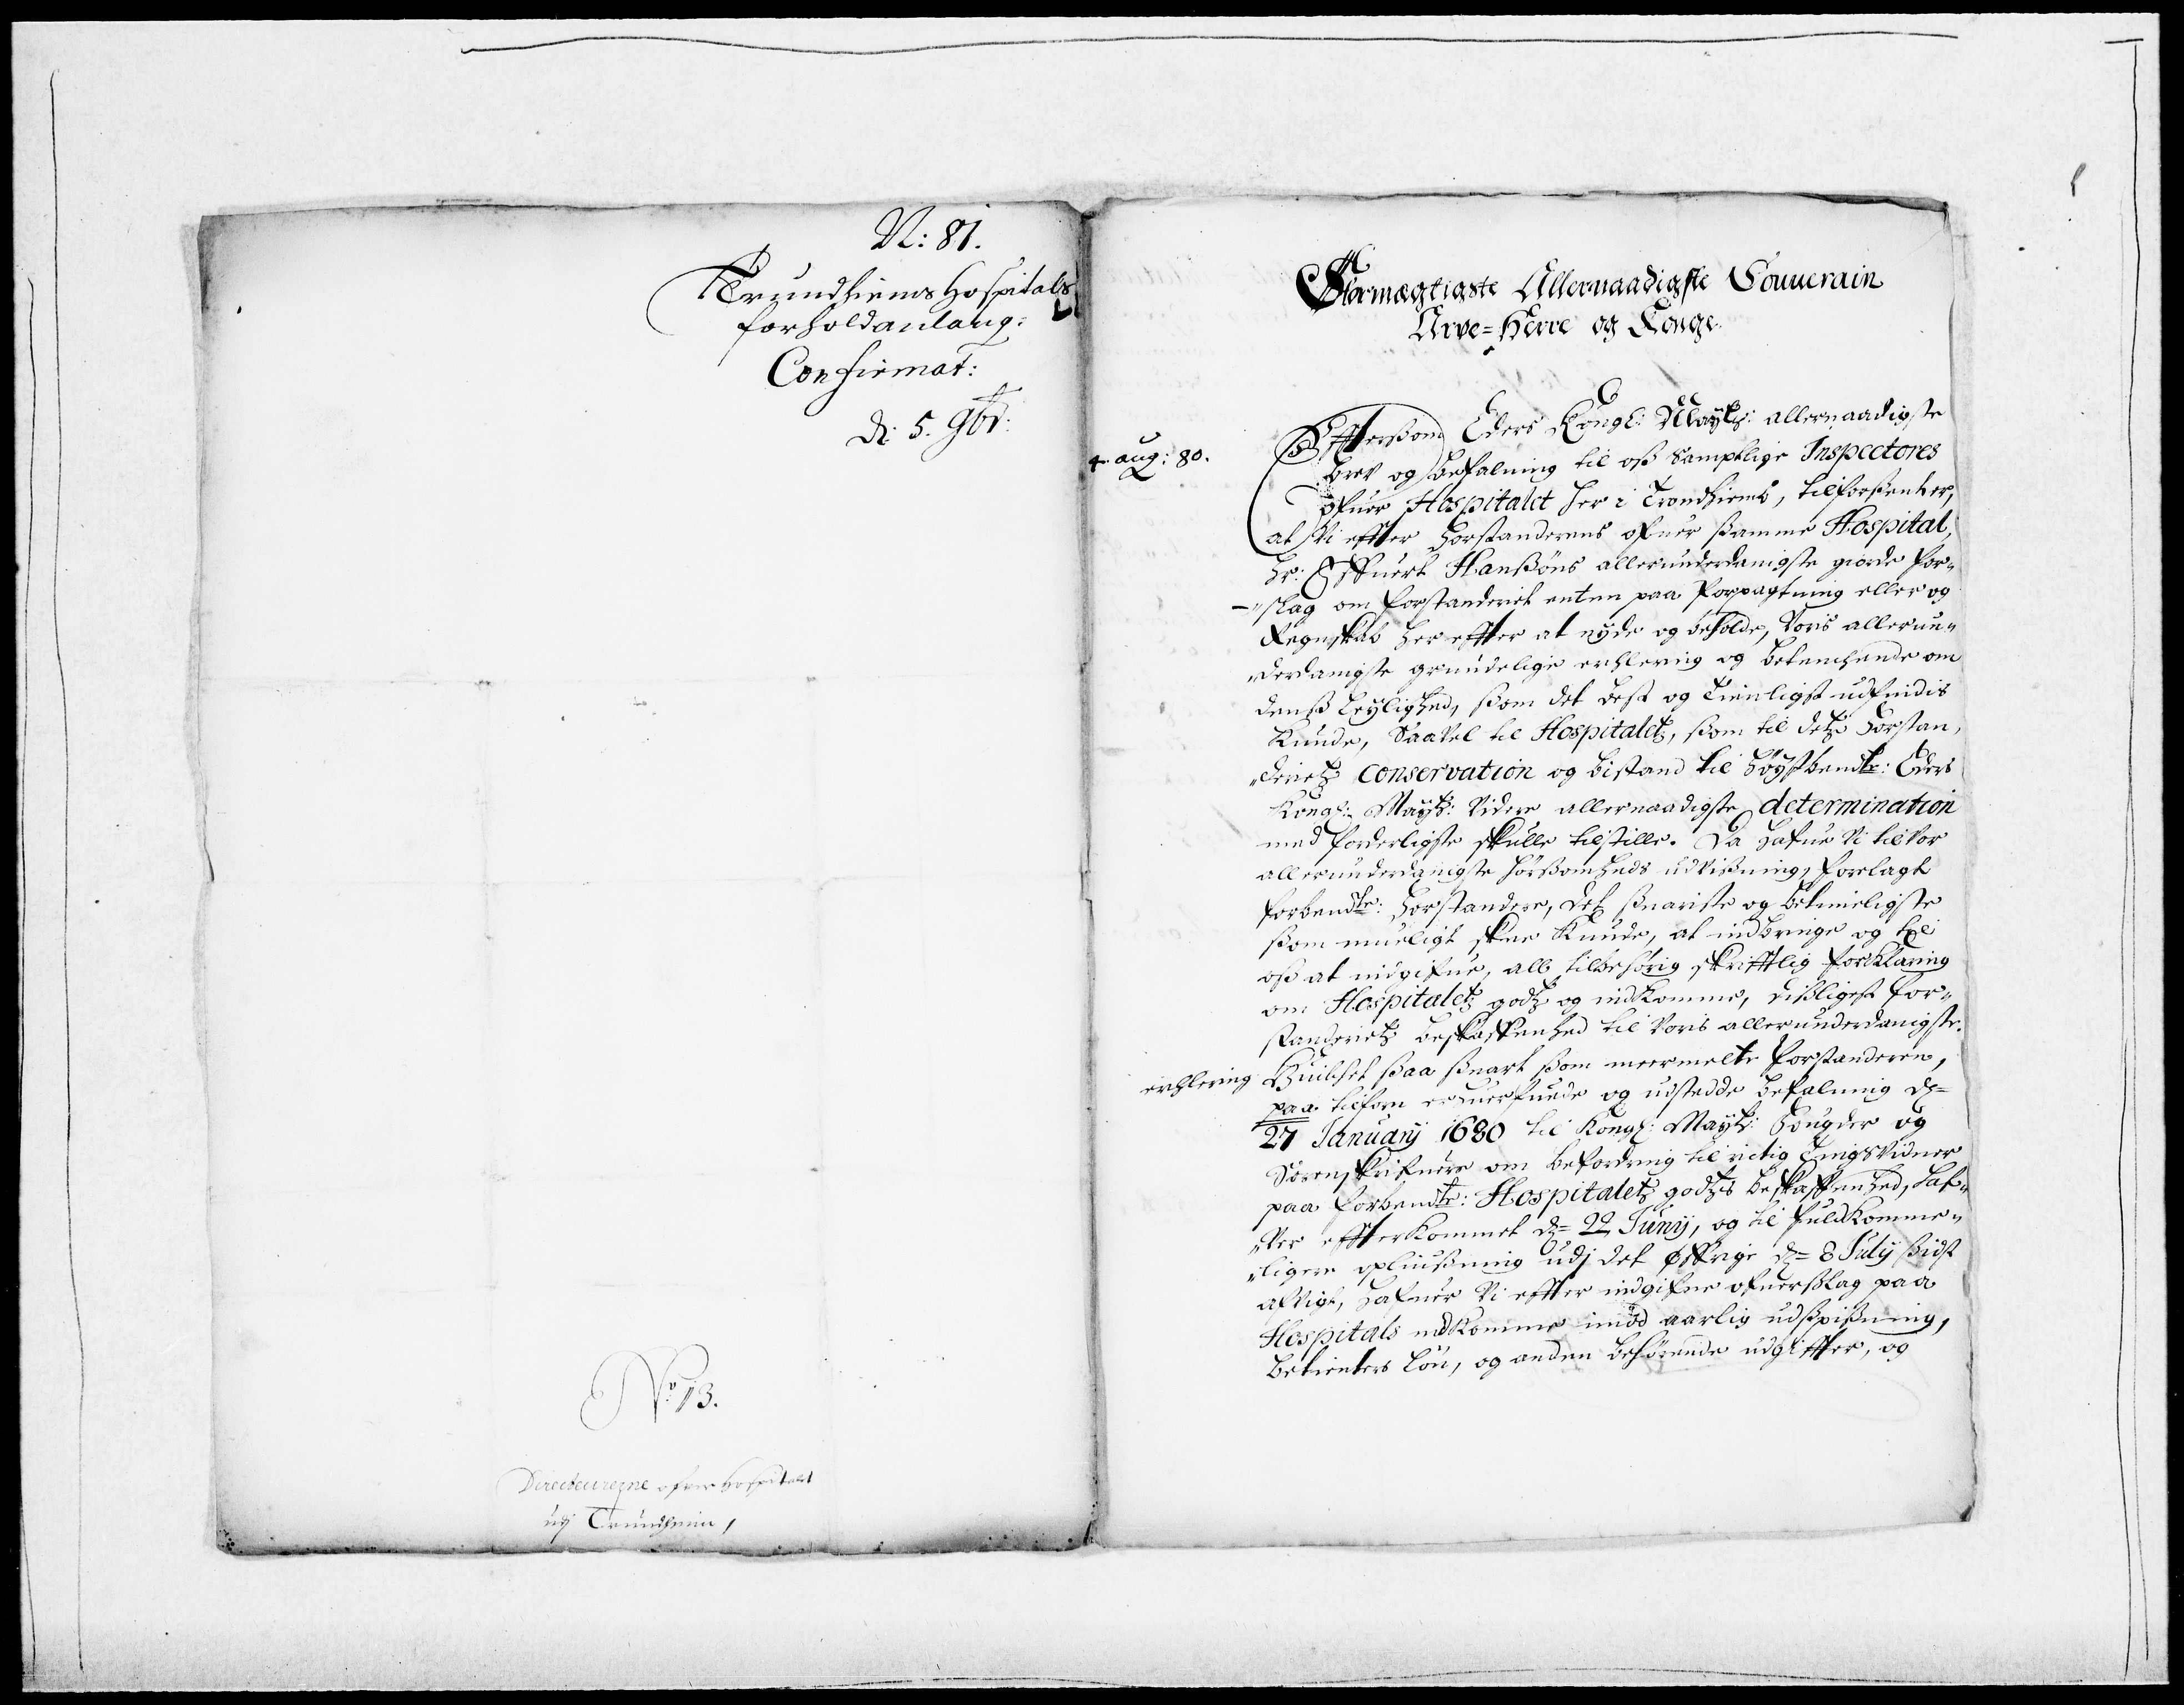 N: 81.
Trundhiems Hospitals
forhold anlang:
Confirmat:
d: 5. 9br:
No 13.
Directeurerne ofver Hospitalet
udj Trundhiem,
Stormægtigste Allernaadigste Souverain
Arve=Herre og Konge
4. aug: 80.
Effterßom Eders Kongl: Mayts: allernaadigste
brev og befalning til oß Samptlige Inspectores
ofuer Hospitalet her i Trondhiemb, tilforßender,
at Vi effter Forstanderens ofuer ßamme Hospital,
Hr: Hanßöns allerunderdanigste giorde for„
„slag om forstanderiet enten paa Forpagtning eller og
Regnskab her effter at nyde og beholde, Vores allerun„
„derdanigste grundelige erchlering og betenchende om
denß leylighed, ßom det best og tienligst udfindis
Kunde, Saavel til Hospitaletz, ßom til detz Forstan„
„derietz conservation og bistand til höystbemte: Eders
Kongl: Mayts: Videre allernaadigste determination
med forderligste skulle tilstille. Da hafue Vi til vor
allerunderdanigste hörßomheds udvißning, forelagt
forbemte: Forstandere, det ßnariste og betimeligste
ßom mueligt skee Kunde, at indbringe og til
oß at indgifue, all tilbehörig skrifftlig forklaring
om Hospitaletz godtz og indkomme, dißligest for„
standerietz beskaffenhed til Voris allerunderdanigste.
erchlering Huilchet ßaa ßnart ßom meermelte Forstanderen,
paa tilforn erhuerfuede og udstedde befalning d=
27 January 1680 til Kongl: Mayts: Fougder og
Sörenskrifuere om befordring til rictig Tingsvidner
paa forbemte: Hospitaletz godtzis beskaffenhed, haf„
„ver effterkommet d= 22 Juny, og til fuldkomme„
„ligere opliußning udj det öffrige d= 8 July ßidst
afvigt, Hafuer Vi effter indgifne ofuerßlag paa
Hospitals indkomme imod aarlig udßpißning,
betienters lön, og anden behörende udgiffter, og